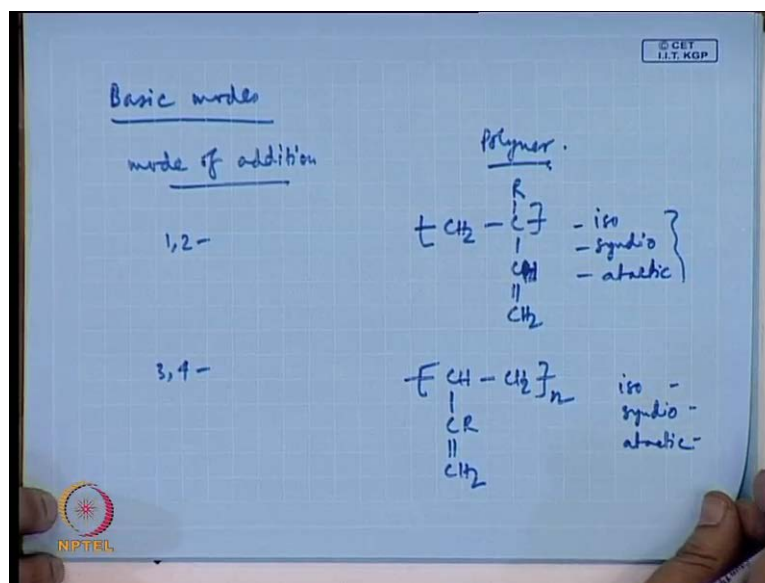 © CET
I.I.T. KGP
Basic modes
mode of addition
Polymer.
1,2-
R
[ CH2 - C ]
CH
||
CH2
- iso
- syndio
- atactic
3,4-
[ CH - CH2 ]n
CR
||
CH2
iso -
syndio -
atactic -
NPTEL